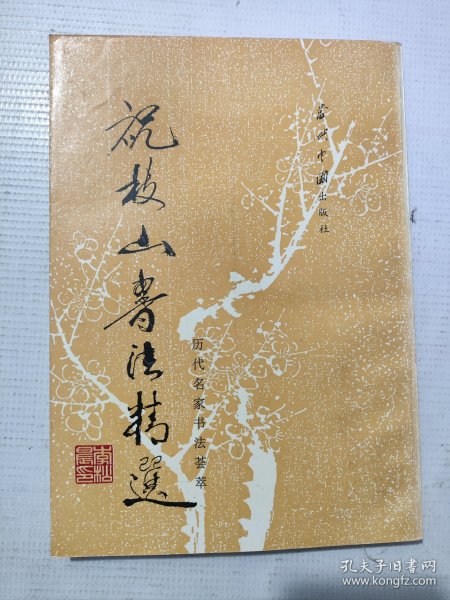 當代中國出版社
历代名家书法荟萃
祝枝山書法精選
孔夫子旧书网
www.kongfz.com